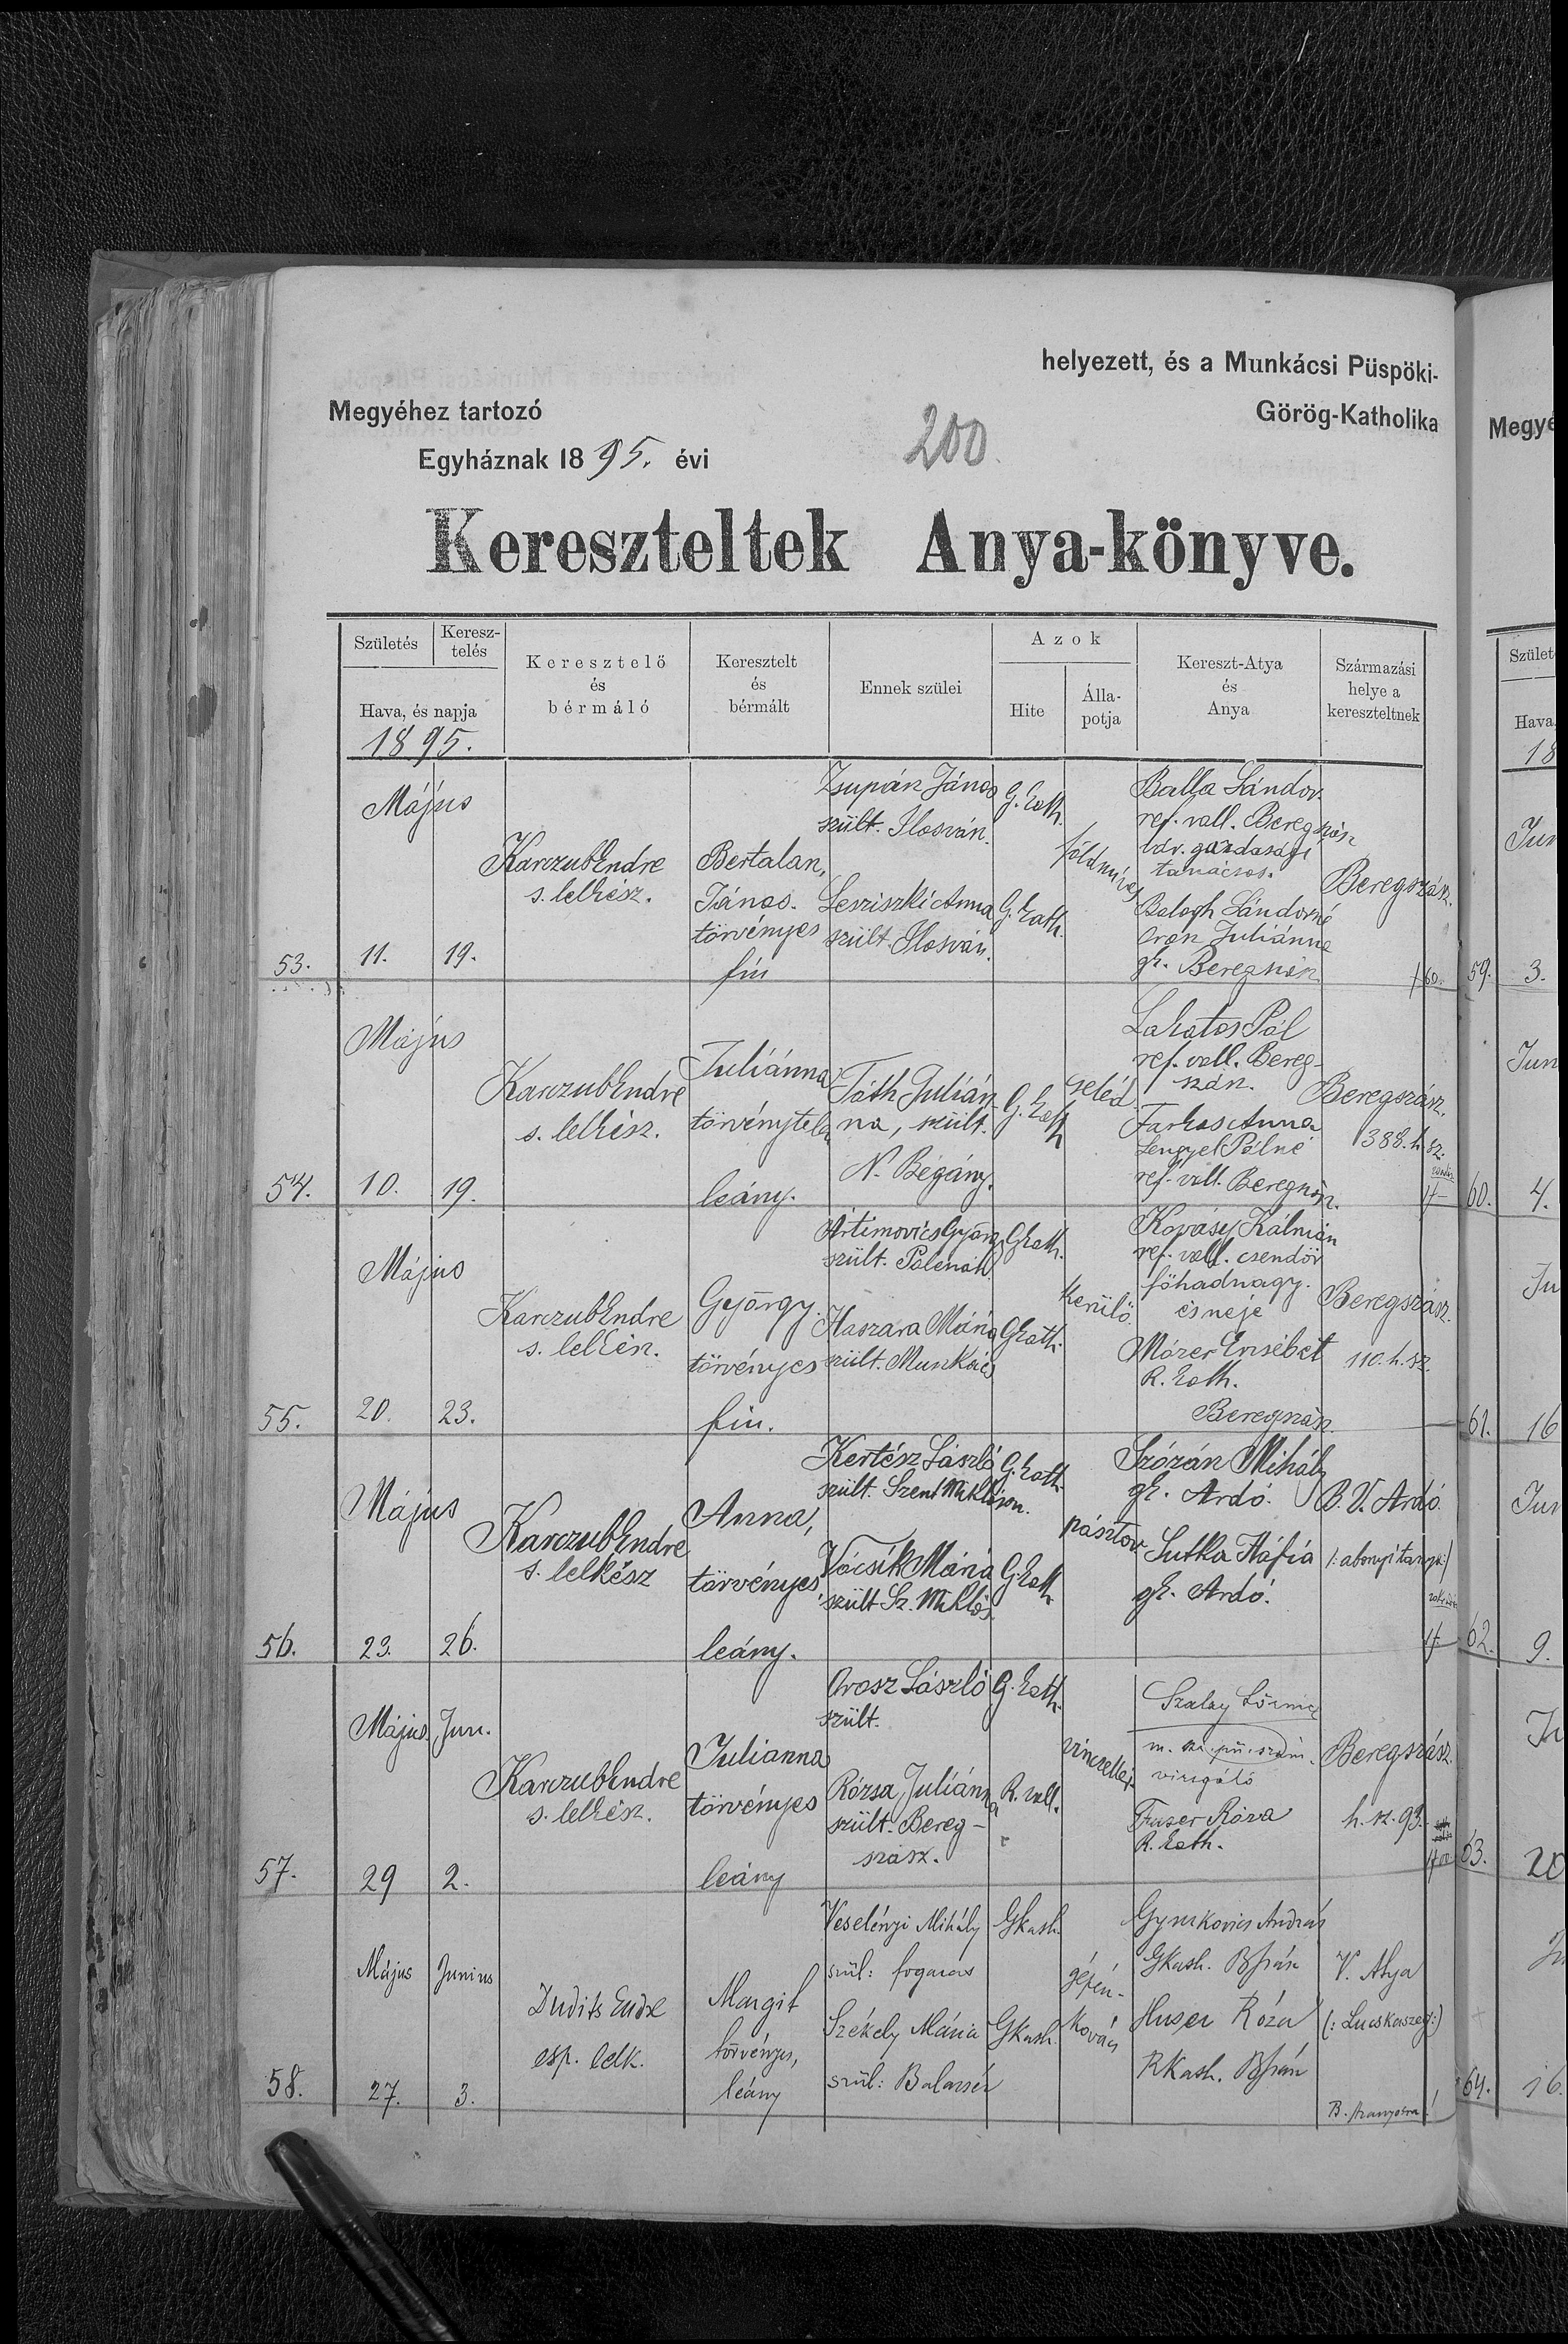 helyezett, és a Munkácsi Püspöki-
Megyéhez tartozó
Görög-Katholika
Egyháznak 1895. évi
200
Kereszteltek Anya-könyve.
Születés
Keresz-
telés
Hava, és napja
1895.
Keresztelő
és
bérmáló
Keresztelt
és
bérmált
Ennek szülei
Azok
Hite
Álla-
potja
Kereszt-Atya
és
Anya
Származási
helye a
kereszteltnek
53.
Május
11.
19.
Karczub Endre
s. lelkész.
Bertalan,
János.
törvényes
fiu
Zsupán János
szült. Ilosván.
Anna
szült. Ilosván.
G. kath.
G. kath.
földmives
Balla Sándor
ref. vall. Beregszász
tanácsos.
Balogh Sándorné
Juliánna
gk. Beregszász
Beregszász.
54.
Május
10.
19.
Karczub Endre
s. lelkész.
Juliánna
törvénytelen
leány.
Tóth Julián
na, szült.
N. Bégány.
G. kath
cseléd
Lakatos Pál
ref. vall. Bereg-
szász.
Farkas Anna
Lengyel Pálné
ref. vall. Beregszász.
Beregszász.
388. h. sz.
55.
Május
20.
23.
Karczub Endre
s. lelkész.
György.
törvényes
fiu.
Artimovics György
szült. Polenah.
Haszara Mária
szült. Munkács
Gkath.
Gkath.
kerülő.
Kovásy Kálmán
ref. vall. csendőr
főhadnagy.
és neje
Mózer Erzsébet
R. kath.
Beregszász
Beregszász.
110. h. sz.
56.
Május
23.
26.
Karczub Endre
s. lelkész
Anna,
törvényes,
leány.
Kertész László
szült. Szent Miklóson.
Vócsik Mária
szült Sz. Miklós.
G. kath.
G. kath
pásztor
Szózán Mihály
gk. Ardó.
Sutka Háfia
gk. Ardó.
B. V. Ardó.
(: abonyi tanya :)
57.
Május
Jun.
29
2.
Karczub Endre
s. lelkész.
Julianna
törvényes
leány
Orosz László
szült.
Rózsa Juliánna
szült. Bereg-
szász.
G. kath.
R. vall.
vinczellér
Szalay Lőrincz
vizsgáló
Róza
R. kath.
Beregszász.
h. sz. 93.
58.
Május
Junius
27.
3.
Dudits Endre
esp. lelk.
Margit
törvényes,
leány
Veselényi Mihály
szül: fogaras
Székely Mária
szül:
Gkath.
Gkath.
gépén-
kovács
András
Gkath. Bszász
Huser Róza
Rkath. Bszász
V. Atya
(: Lucskaszeg :)
59.
3.
60.
4.
61.
16
62.
9.
63.
20
64.
16.